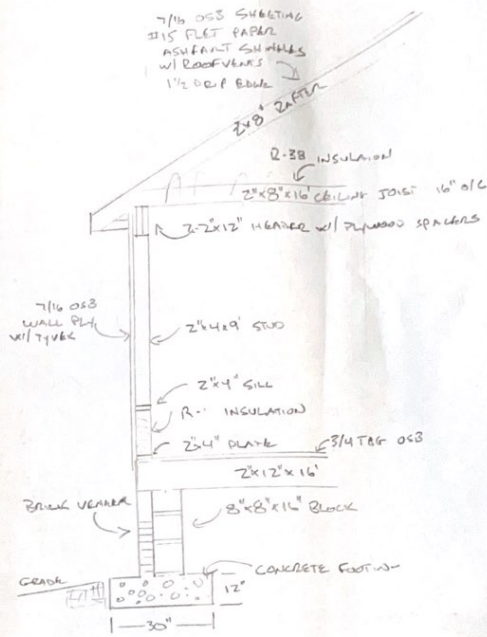 7/16 OSB SHEETING
#15 FLET PAPER
ASHFALT SHINGLES
W/ ROOFVENTS
1 1/2 DRIP EDGE
2x8' RAFTER
R-38 INSULAION
2"x8"x16' CEILING JOIST 16" O/C
2-2"x12" HEADER W/ PLYWOOD SPACERS
7/16 OSB
WALL PLY
W/ TYVEK
2"x4x9' STUD
2"x4" SILL
R- INSULATION
2"x4" PLATE
3/4 T&G OSB
2"x12"x16'
BRICK VENEER
8"x8"x16" BLOCK
CONCRETE FOOTIN
GRADE
12"
30"